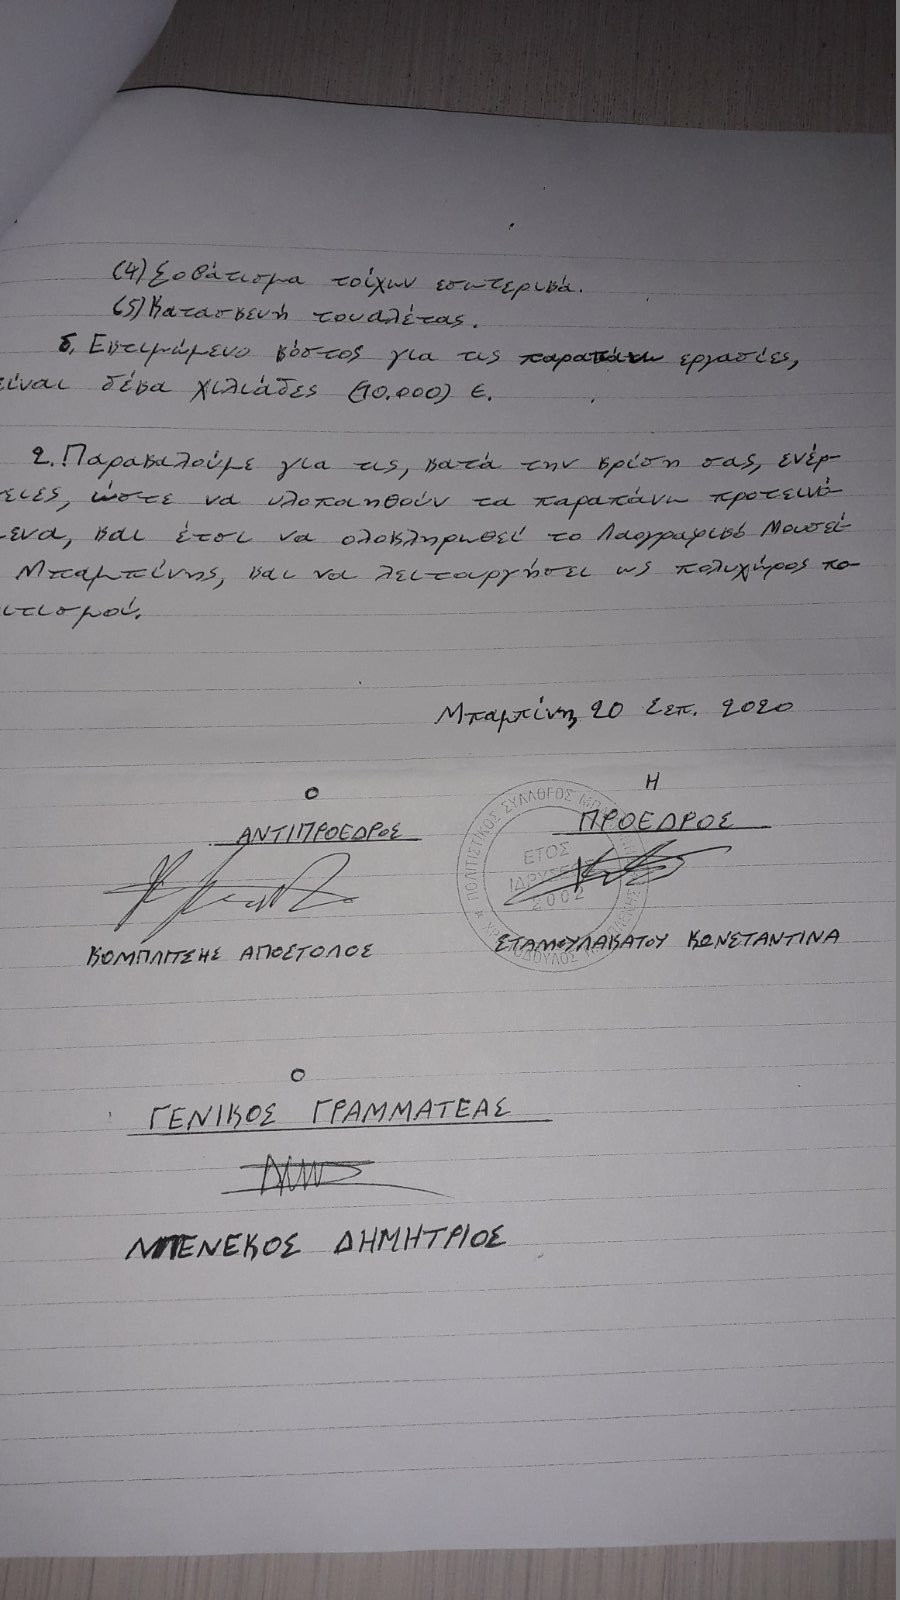 (4) Σοβάτισμα τοίχων εσωτερικά.
(5) Κατασκευή τουαλέτας.
δ. Εκτιμώμενο κόστος για τις παραπάνω εργασίες,
είναι δέκα χιλιάδες (10.000) €.
2. Παρακαλούμε για τις, κατά την κρίση σας, ενέρ-
γειες, ώστε να υλοποιηθούν τα παραπάνω προτεινό-
μενα, και έτσι να ολοκληρωθεί το Λαογραφικό Μουσεί-
Μπαμπίνης, και να λειτουργήσει ως πολυχώρος πο-
ιτισμού.
Μπαμπίνη, 20 Σεπ. 2020
Ο
ΑΝΤΙΠΡΟΕΔΡΟΣ
ΚΟΜΠΛΙΤΣΗΣ ΑΠΟΣΤΟΛΟΣ
Η
ΠΡΟΕΔΡΟΣ
ΠΟΛΙΤΙΣΤΙΚΟΣ ΣΥΛΛΟΓΟΣ
ΕΤΟΣ
ΙΔΡΥΣΕΩΣ
2002
ΣΤΑΜΟΥΛΑΚΑΤΟΥ ΚΩΝΣΤΑΝΤΙΝΑ
Ο
ΓΕΝΙΚΟΣ ΓΡΑΜΜΑΤΕΑΣ
ΜΠΕΝΕΚΟΣ ΔΗΜΗΤΡΙΟΣ